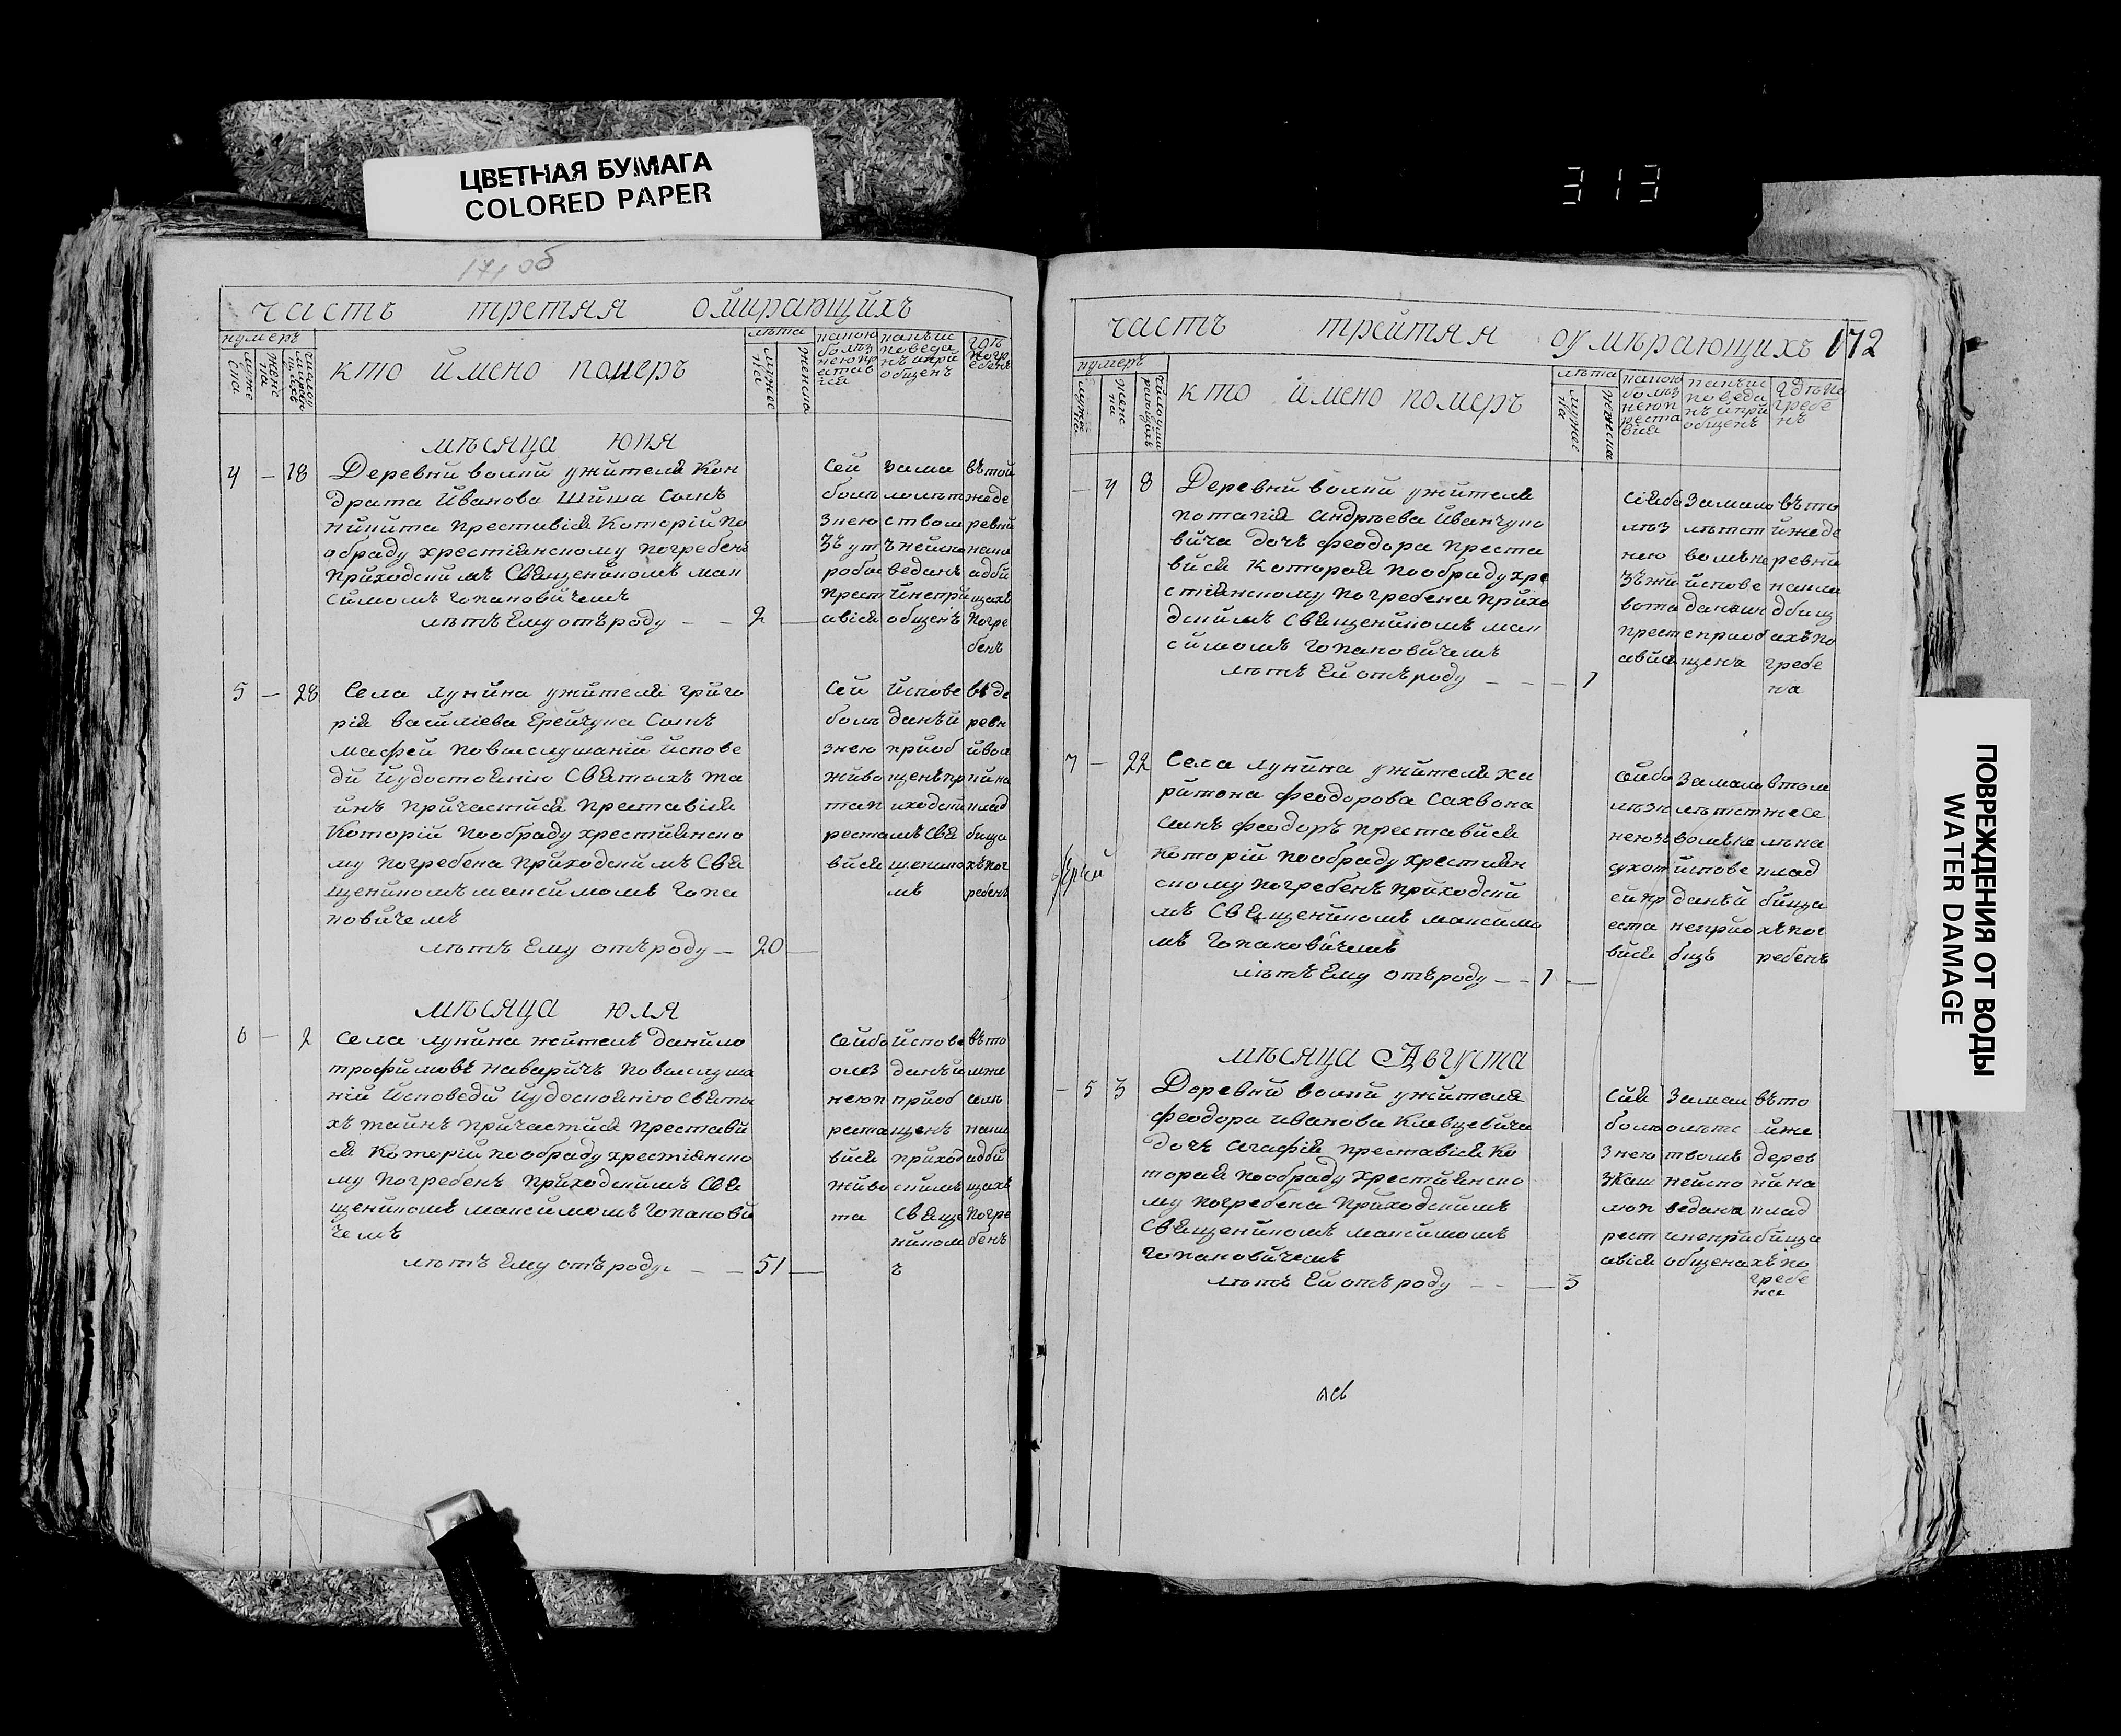 ЦВЕТНАЯ БУМАГА
COLORED PAPER
313
171 об
часть третяя омирающихъ
нумеръ
кто ймено померъ
лѣта
мѣсяца юня
4 — 18 Деревнй волнй ужителя Кон
драта Йванова Шйша Сынъ
Нйкита преставіся Которій по
обраду хрестіянскому погребенъ
прйходскймъ Священйкомъ Мак
сймомъ Гопановйчемъ
лѣтъ Ему отъ роду — — 2 —
Сей
боль
знею
Зъут
роба
прест
авіся
Зама
лольт
ствои
ънейспо
веданъ
йнепрй
общенъ
вътой
жеде
ревнй
накл
адбй
щахъ
погре
бенъ
5 — 28 Села лунйна ужителя Грйго
рія васйліева Ерейчука Сынъ
Мафей повыслушаній йспове
дй йудостоенію Святыхъ та
йнъ прйчастйся преставіся
Которій пообраду хрестйянско
му погребена прйходскймъ Свя
щенйкомъ максймомъ Гопа
новйчемъ
лѣтъ Ему отъ роду — 20 —
Сей
боль
знею
жйво
тап
реста
вйся
йспове
данъй
прйоб
щенъпр
иходскй
мъСвя
щенико
мъ
въде
ревн
йвол
нйна
клад
бища
хъпог
ребенъ
мѣсяца юля
6 — 2 Села лунйна жйтель данйло
трофймовъ наварйчъ повыслуша
ній йсповедй йудостоенію святы
хъ тайнъ прйчастйся преставй
ся Которій пообраду хрестіянско
му погребенъ прйходскймъ Свя
щенйкомъ максймомъ Гопановй
чемъ
лѣтъ Ему отъ роду — — 51 —
Сейбо
олез
неюп
реста
вйся
жйво
та
йспове
данъй
прйоб
щенъ
прйход
скймъ
Свяще
нйком
ъ
въто
мже
селѣ
накл
адбй
щахъ
погре
бенъ
часть трейтяя оумѣрающихъ 172
нумеръ
кто ймено померъ
лѣта
— 4 8 Деревнй волнй ужителя
потапія Андрѣева Йванчуко
вйча дочъ феодора преста
вйся Которая пообраду хре
стіянскому погребена прйхо
дскймъ Священйкомъ мак
сймомъ Гопановйчемъ
лѣтъ Ей отъ роду — — — 1
Сіябо
лѣз
нею
Зъжй
вота
прест
авйся
Замало
лѣтст
вомъне
йспове
данаин
еприоб
щена
въто
йжеде
ревнй
накла
дбищ
ахъпо
гребе
на
7 — 22 Села лунйна ужителя ха
рйтона феодорова Сахвона
Сынъ феодоръ преставйся
Которій пообраду хрестиян
скому погребенъ прйходскй
мъ Священйкомъ максймо
мъ Гопановйчемъ
лѣтъ Ему отъ роду — — 1 —
въ том
жесе
лѣна
клад
бища
хъпог
ребенъ
мѣсяца Августа
— 5 3 Доревнй волнй ужителя
феодора йванова Клевцевйча
дочъ Агафія преставіся Ко
торая пообраду хрестйянско
му погребена прйходскймъ
Священйкомъ максймомъ
Гопановйчемъ
лѣтъ Ей отъ роду — — — 3
Сйя
боль
знею
Зкаш
люп
рест
авіся
Замал
олѣтс
твомъ
нейспо
ведана
инепри
общена
въто
йже
дерев
нйна
клад
бища
хъпо
гребе
на
ПОВРЕЖДЕНИЯ ОТ ВОДЫ
WATER DAMAGE